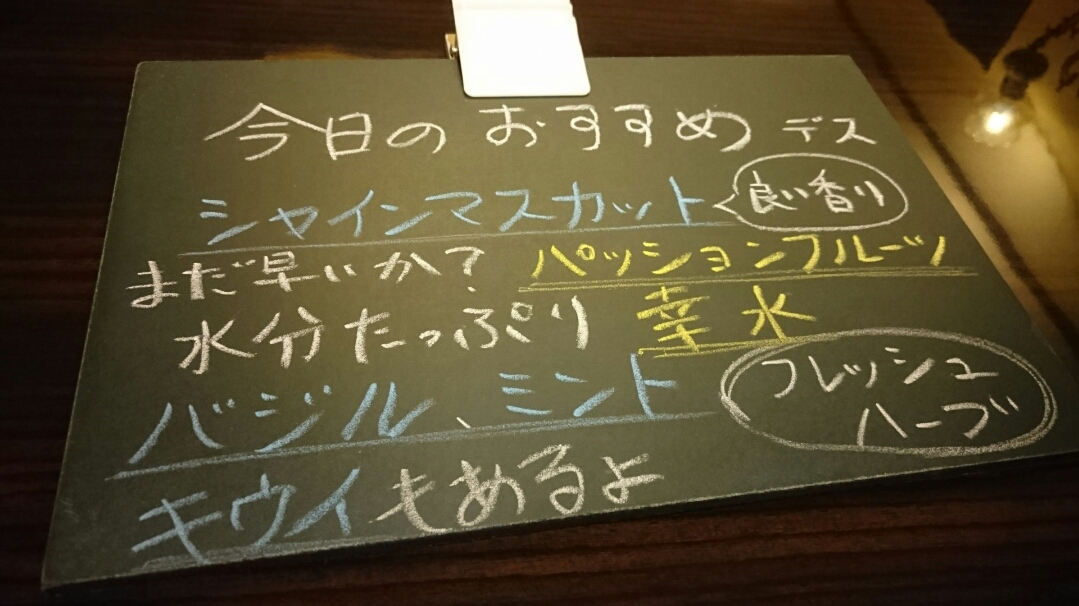 今日のおすすめデス
シャインマスカット 良い香り
まだ早いか？ パッションフルーツ
水分たっぷり 幸水
バジル、ミント フレッシュ
ハーブ
キウイもあるよ